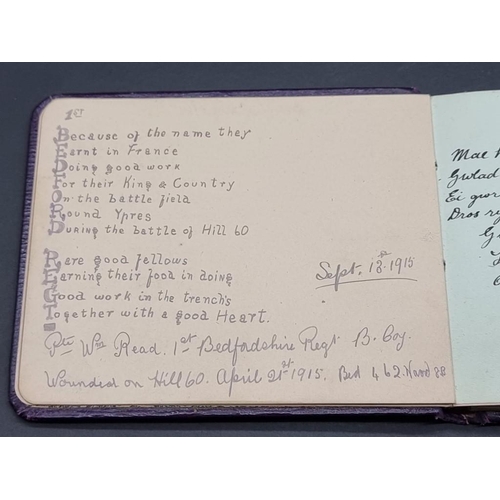 1ST
Because of the name they
Earnt in France
Doing good work
For their King & Country
On the battle field
Round Ypres
DURING the battle of Hill 60
Rare good fellows
Earning their food in doing
Good work in the trench's
Together with a good Heart.
Sept. 1915
Pte Wm Read. 1st Bedfordshire Regt B. Coy.
Wounded on Hill 60. April 21st 1915. Bed 462. Ward 8B
Mae
Gwlad
Ei
Dros